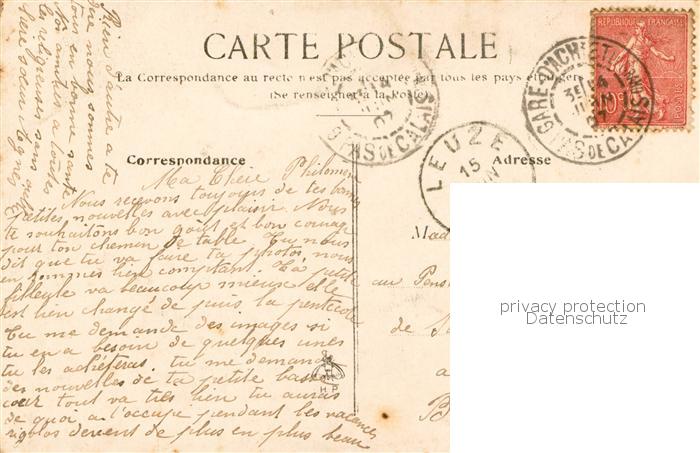 CARTE POSTALE
La Correspondance au recto n'est pas acceptée par tous les pays étrangers
(Se renseigner à la Poste)
Correspondance
Adresse
RÉPUBLIQUE FRANÇAISE
10
POSTES
GARE D'ACHIET
PAS DE CALAIS
PAS DE CALAIS
LEUZE
15
Rien d'autre a te
dire nous sommes
tous en bonne santé
Nos amitiés a toutes
les religieuses sans oublier
Mère soeur Agnès
Ma Chère Philomène
Nous recevons toujours de tes bonnes
petites nouvelles avec plaisir. Nous
te souhaitons bon goût et bon courage
pour ton chemin de table. Tu nous
dit que tu va faire ta photos, nous
en sommes bien comptant. La petite
filleule va beaucoup mieux elle
est bien changé de puis la pentecôte
Tu me demande des images si
tu en a besoin de quelques unes
tu les achéteras. tu me demande
des nouvelles de ta petite basse
cour tout va très bien tu auras
de quoi a t'occupé pendant les vacances
rigolos devient de plus en plus beau
H P
Mad
au Pens
de
a
B
privacy protection
Datenschutz